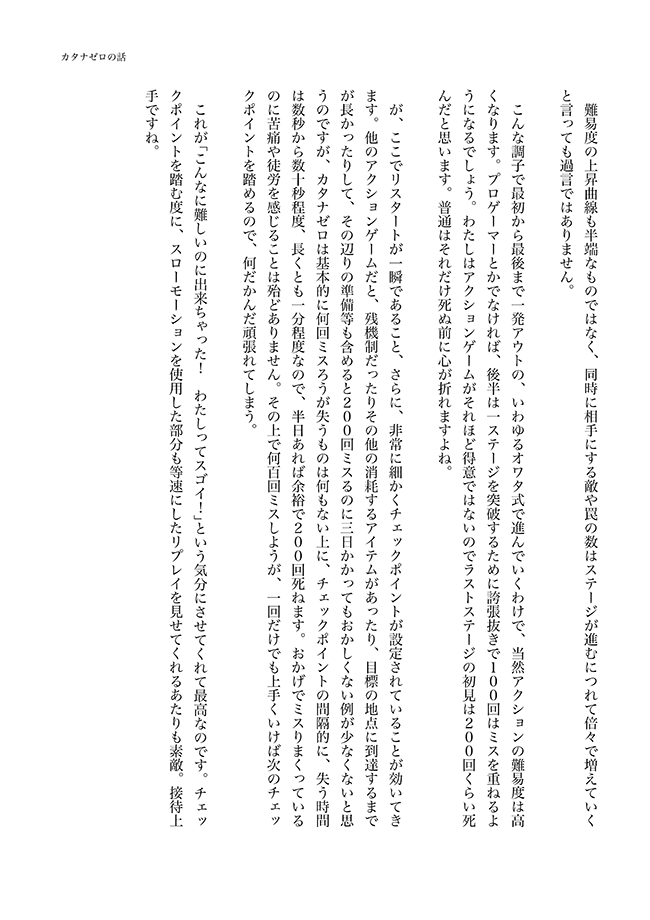 カタナゼロの話
　難易度の上昇曲線も半端なものではなく、同時に相手にする敵や罠の数はステージが進むにつれて倍々で増えていく
と言っても過言ではありません。
　こんな調子で最初から最後まで一発アウトの、いわゆるオワタ式で進んでいくわけで、当然アクションの難易度は高
くなります。プロゲーマーとかでなければ、後半は一ステージを突破するために誇張抜きで１００回はミスを重ねるよ
うになるでしょう。わたしはアクションゲームがそれほど得意ではないのでラストステージの初見は２００回くらい死
んだと思います。普通はそれだけ死ぬ前に心が折れますよね。
　が、ここでリスタートが一瞬であること、さらに、非常に細かくチェックポイントが設定されていることが効いてき
ます。他のアクションゲームだと、残機制だったりその他の消耗するアイテムがあったり、目標の地点に到達するまで
が長かったりして、その辺りの準備等も含めると２００回ミスるのに三日かかってもおかしくない例が少なくないと思
うのですが、カタナゼロは基本的に何回ミスろうが失うものは何もない上に、チェックポイントの間隔的に、失う時間
は数秒から数十秒程度、長くとも一分程度なので、半日あれば余裕で２００回死ねます。おかげでミスりまくっている
のに苦痛や徒労を感じることは殆どありません。その上で何百回ミスしようが、一回だけでも上手くいけば次のチェッ
クポイントを踏めるので、何だかんだ頑張れてしまう。
　これが「こんなに難しいのに出来ちゃった！　わたしってスゴイ！」という気分にさせてくれて最高なのです。チェッ
クポイントを踏む度に、スローモーションを使用した部分も等速にしたリプレイを見せてくれるあたりも素敵。接待上
手ですね。